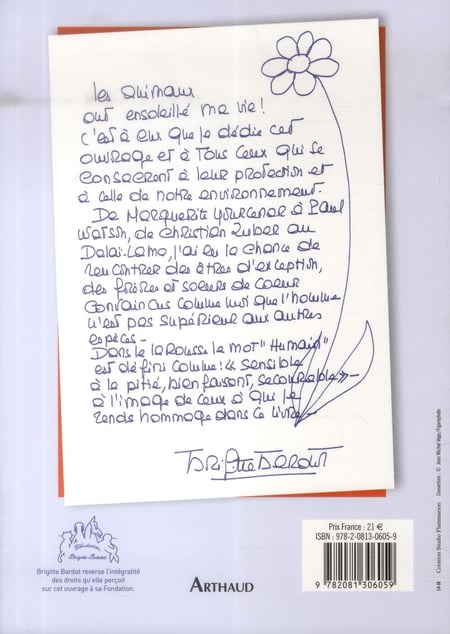 les animaux
ont ensoleillé ma vie!
c'est à eux que je dédie cet
ouvrage et à tous ceux qui se
consacrent à leur protection et
à celle de notre environnement.
De Marguerite Yourcenar à Paul
Watson, de Christian Zuber au
Dalaï-Lama, j'ai eu la chance de
rencontrer des êtres d'exception,
des frères et soeurs de coeur
convaincus comme moi que l'homme
n'est pas supérieur aux autres
espèces -
Dans le Larousse le mot "Humain"
est défini comme: « sensible
à la pitié, bienfaisant, secourable » -
à l'image de ceux à qui je
rends hommage dans ce livre -
Brigitte Bardot
Fondation
Brigitte Bardot
Brigitte Bardot reverse l'intégralité
des droits qu'elle perçoit
sur cet ouvrage à sa Fondation.
ARTHAUD
Prix France : 21 €
ISBN : 978-2-0813-0605-9
9 782081 306059
14-III Création Studio Flammarion
Couverture : © Jean Michel Voge/Figarophoto